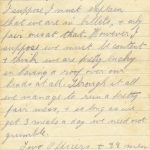 I suppose I must explain
that we are in billets, & only
fair meat that. However, I
suppose we must be content
& think we are pretty lucky
in having a roof over our
heads at all. Through it all
we manage to run a pretty
fair mess, & as long as we
get 3 meals a day we need not
grumble.
Two Officers & 38 men